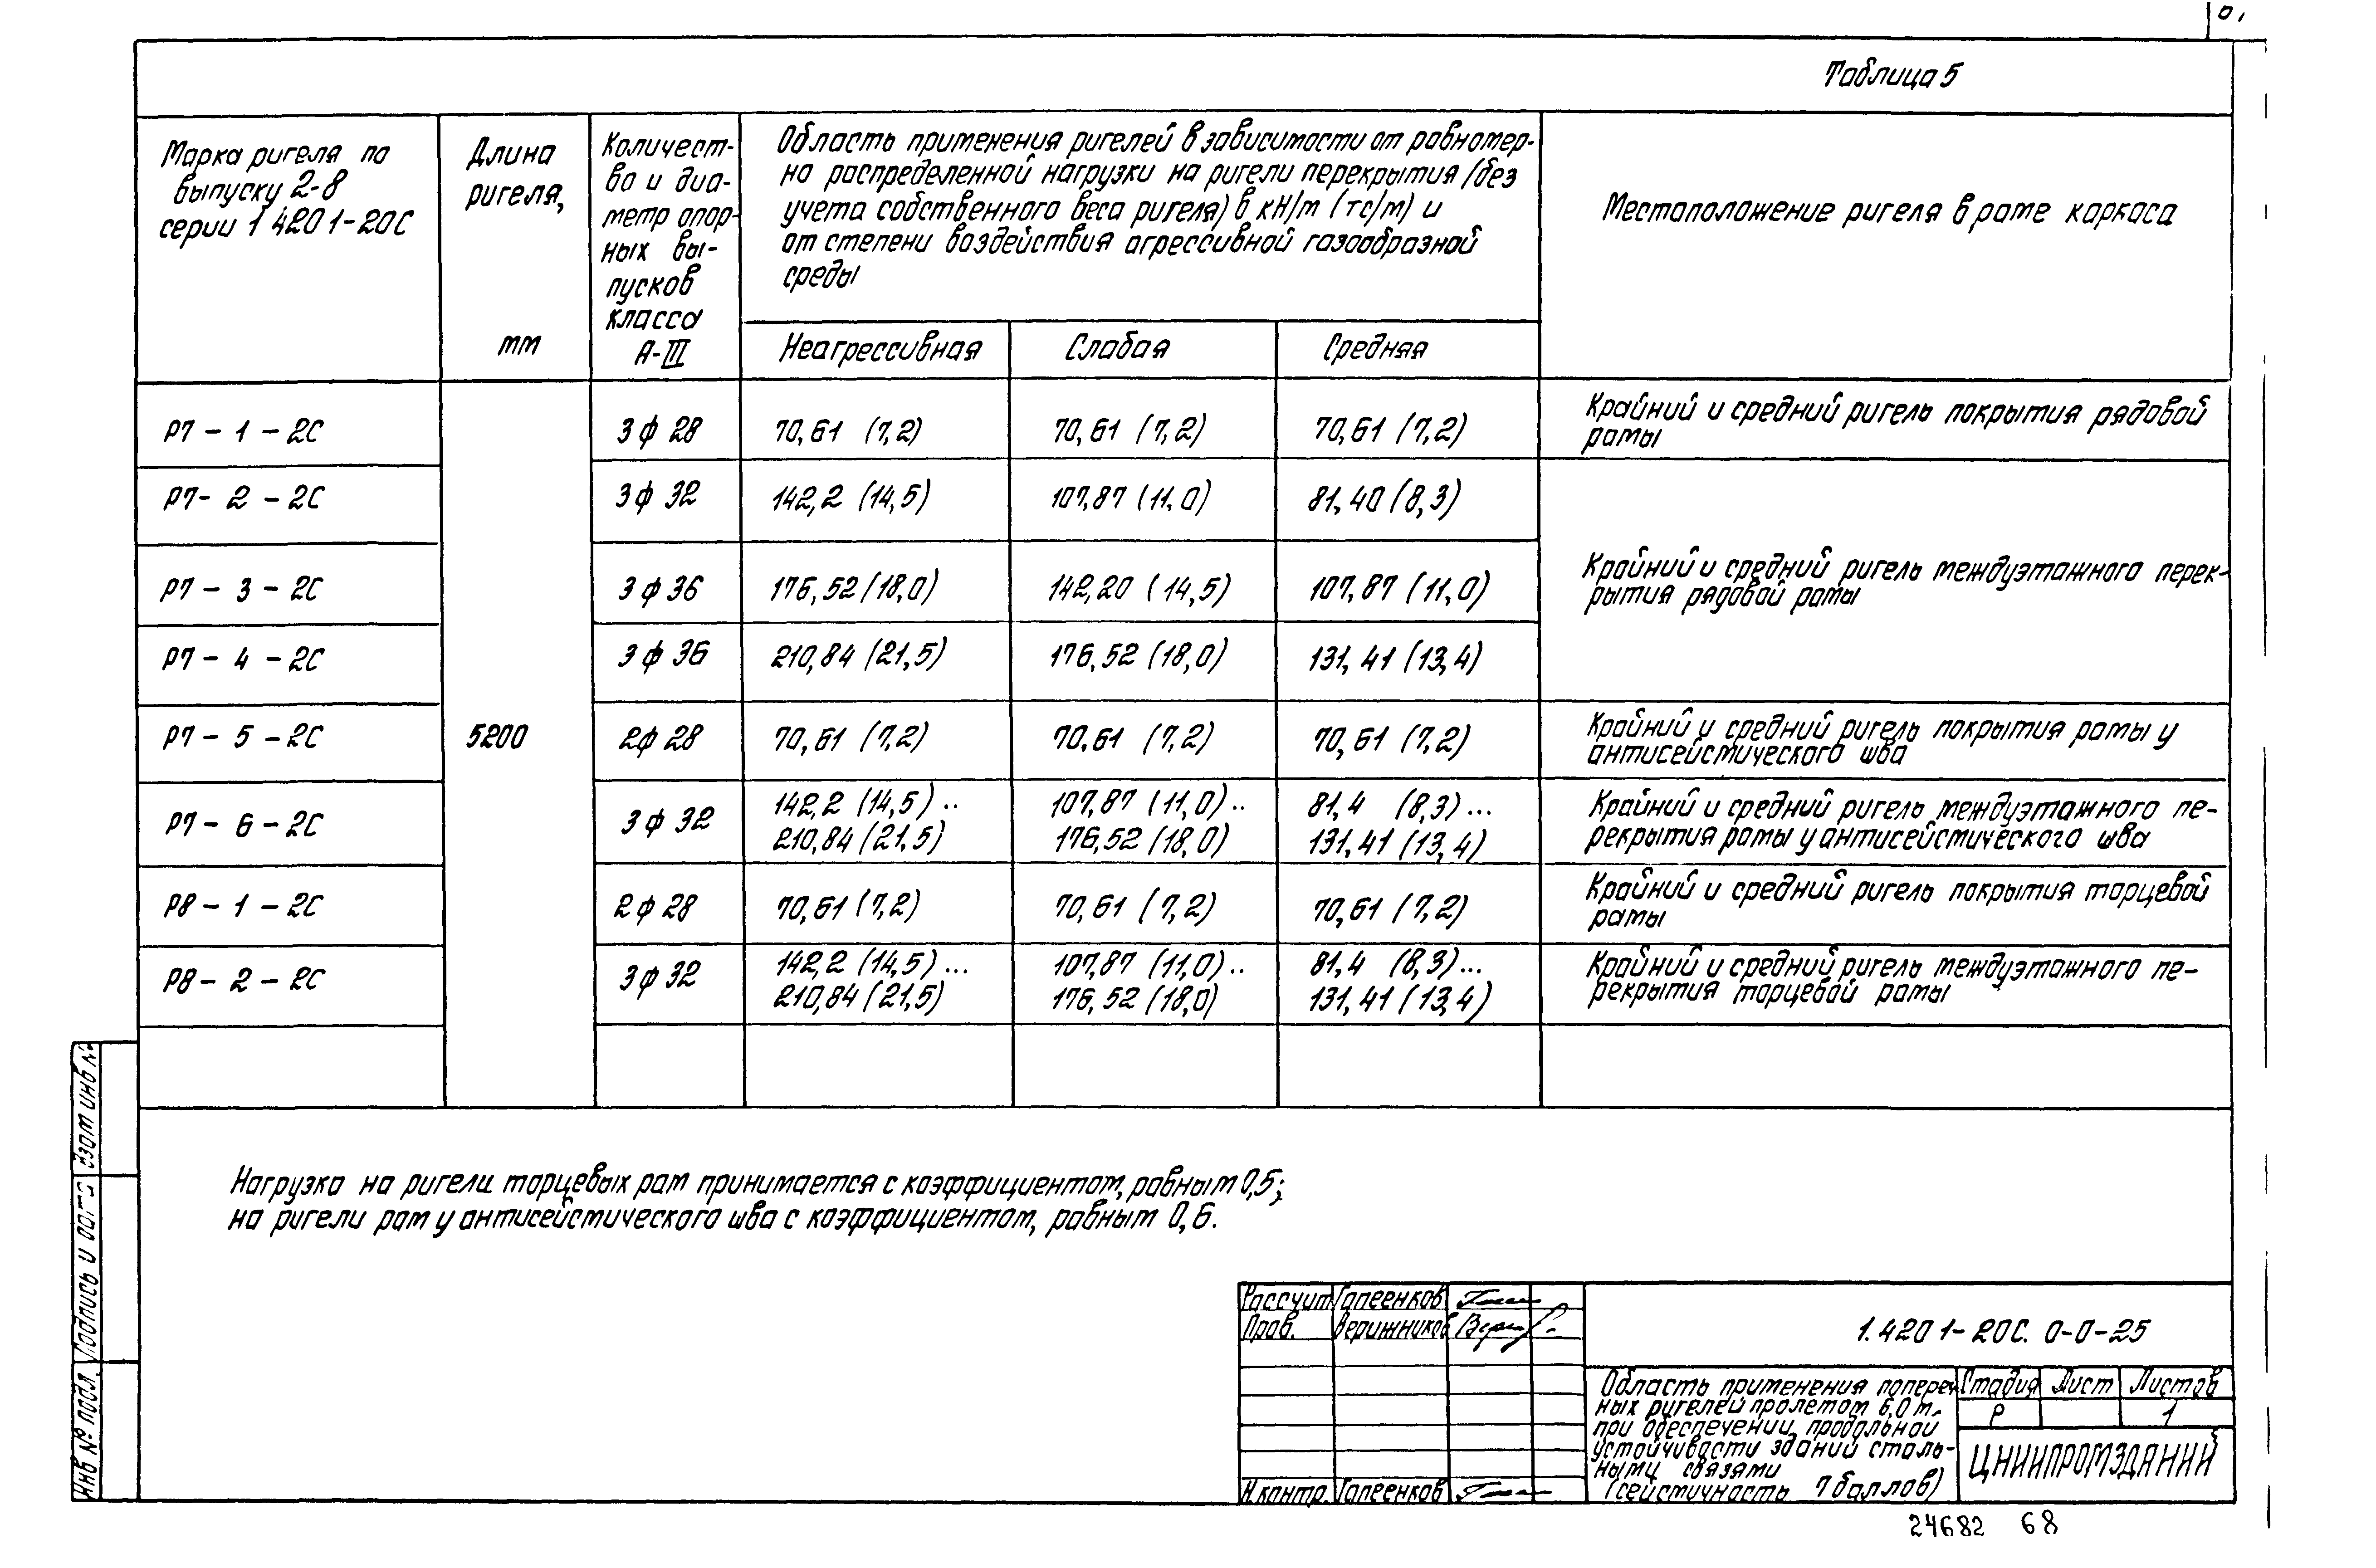 Таблица 5
Марка ригеля по
выпуску 2-8
серии 1 420 1-20С
Длина
ригеля,
мм
Количест-
во и диа-
метр опор-
ных вы-
пусков
класса
А-III
Область применения ригелей в зависимости от равномер-
но распределенной нагрузки на ригели перекрытия (без
учета собственного веса ригеля) в кН/м (тс/м) и
от степени воздействия агрессивной газообразной
среды
Неагрессивная
Слабая
Средняя
Местоположение ригеля в раме каркаса
Р7 - 1 - 2С
3 ф 28
70,61 (7,2)
70,61 (7,2)
70,61 (7,2)
Крайний и средний ригель покрытия рядовой
рамы
Р7 - 2 - 2С
3 ф 32
142,2 (14,5)
107,87 (11,0)
81,40 (8,3)
Р7 - 3 - 2С
3 ф 36
176,52 (18,0)
142,20 (14,5)
107,87 (11,0)
Крайний и средний ригель междуэтажного перек-
рытия рядовой рамы
Р7 - 4 - 2С
3 ф 36
210,84 (21,5)
176,52 (18,0)
131,41 (13,4)
Р7 - 5 - 2С
5200
2ф 28
70,61 (7,2)
70,61 (7,2)
70,61 (7,2)
Крайний и средний ригель покрытия рамы у
антисейсмического шва
Р7 - 6 - 2С
3 ф 32
142,2 (14,5)..
210,84 (21,5)
107,87 (11,0)..
176,52 (18,0)
81,4 (8,3)...
131,41 (13,4)
Крайний и средний ригель междуэтажного пе-
рекрытия рамы у антисейсмического шва
Р8 - 1 - 2С
2 ф 28
70,61 (7,2)
70,61 (7,2)
70,61 (7,2)
Крайний и средний ригель покрытия торцевой
рамы
Р8 - 2 - 2С
3 ф 32
142,2 (14,5)...
210,84 (21,5)
107,87 (11,0)..
176,52 (18,0)
81,4 (8,3)...
131,41 (13,4)
Крайний и средний ригель междуэтажного пе-
рекрытия торцевой рамы
Нагрузка на ригели торцевых рам принимается с коэффициентом, равным 0,5;
на ригели рам у антисейсмического шва с коэффициентом, равным 0,6.
Взам инв №
Подпись и дата
Инв № подл.
Рассчит Гапеенков
Пров. Верижников
Н.контр. Гапеенков
1.420 1-20С. 0-0-25
Область применения попереч
ных ригелей пролетом 6,0 м.
при обеспечении продольной
устойчивости зданий сталь-
ными связями
(сейсмичность 7 баллов)
Стадия Лист Листов
Р 1
ЦНИИПРОМЗДАНИЙ
24682 68